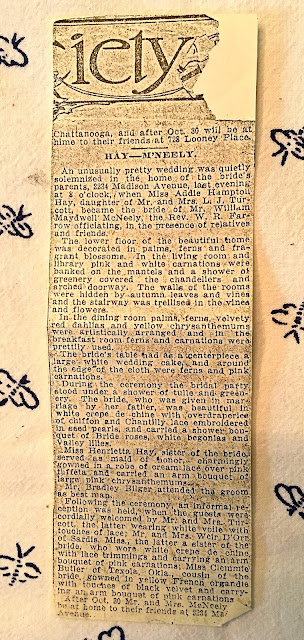 ciety
Chattanooga, and after Oct. 30 will be at
hime to their friends at 728 Looney Place.
HAY—M'NEELY.
An unusually pretty wedding was quietly
solemnized in the home of the bride's
parents, 2234 Madison Avenue, last evening
at 8 o'clock, when Miss Addie Hampton
Hay, daughter of Mr. and Mrs. L. J. Tur-
cott, became the bride of Mr. William
Maydwell McNeely, the Rev. W. R. Far-
row officiating, in the presence of relatives
and friends.
The lower floor of the beautiful home
was decorated in palms, ferns and fra-
grant blossoms. In the living room and
library pink and white carnations were
banked on the mantels and a shower of
greenery covered the chandeliers and
arched doorway. The walls of the rooms
were hidden by autumn leaves and vines
and the stairway was trellised in the vines
and flowers.
In the dining room palms, ferns, velvety
red dahlias and yellow chrysanthemums
were artistically arranged and in the
breakfast room ferns and carnations were
prettily used.
The bride's table had as a centerpiece a
large white wedding cake, and around
the edge of the cloth were ferns and pink
carnations.
During the ceremony the bridal party
stood under a shower of tulle and green-
ery. The bride, who was given in mar-
riage by her father, was beautiful in
white crepe de chine with overdraperies
of chiffon and Chantilly lace embroidered
in seed pearls, and carried a shower bou-
quet of Bride roses, white begonias and
Valley lilies.
Miss Henrietta Hay, sister of the bride,
served as maid of honor, charmingly
gowned in a robe of cream lace over pink
taffeta and carried an arm bouquet of
large pink chrysanthemums.
Mr. Bradley Bilger attended the groom
as best man.
Following the ceremony, an informal re-
ception was held, when the guests were
cordially welcomed by Mr. and Mrs. Tur-
cott, the latter wearing white voile with
touches of lace; Mr. and Mrs. Weir D'Orr
of Sardis, Miss., the latter a sister of the
bride, who wore white crepe de chine
with lace trimmings and carrying an arm
bouquet of pink carnations; Miss Clenimte
Butler of Texola, Okla., cousin of the
bride, gowned in yellow French organdie
with touches of black velvet and carry-
ing an arm bouquet of pink carnations.
After Oct. 30 Mr. and Mrs. McNeely
be at home to their friends at 2234 Ma
Avenue.